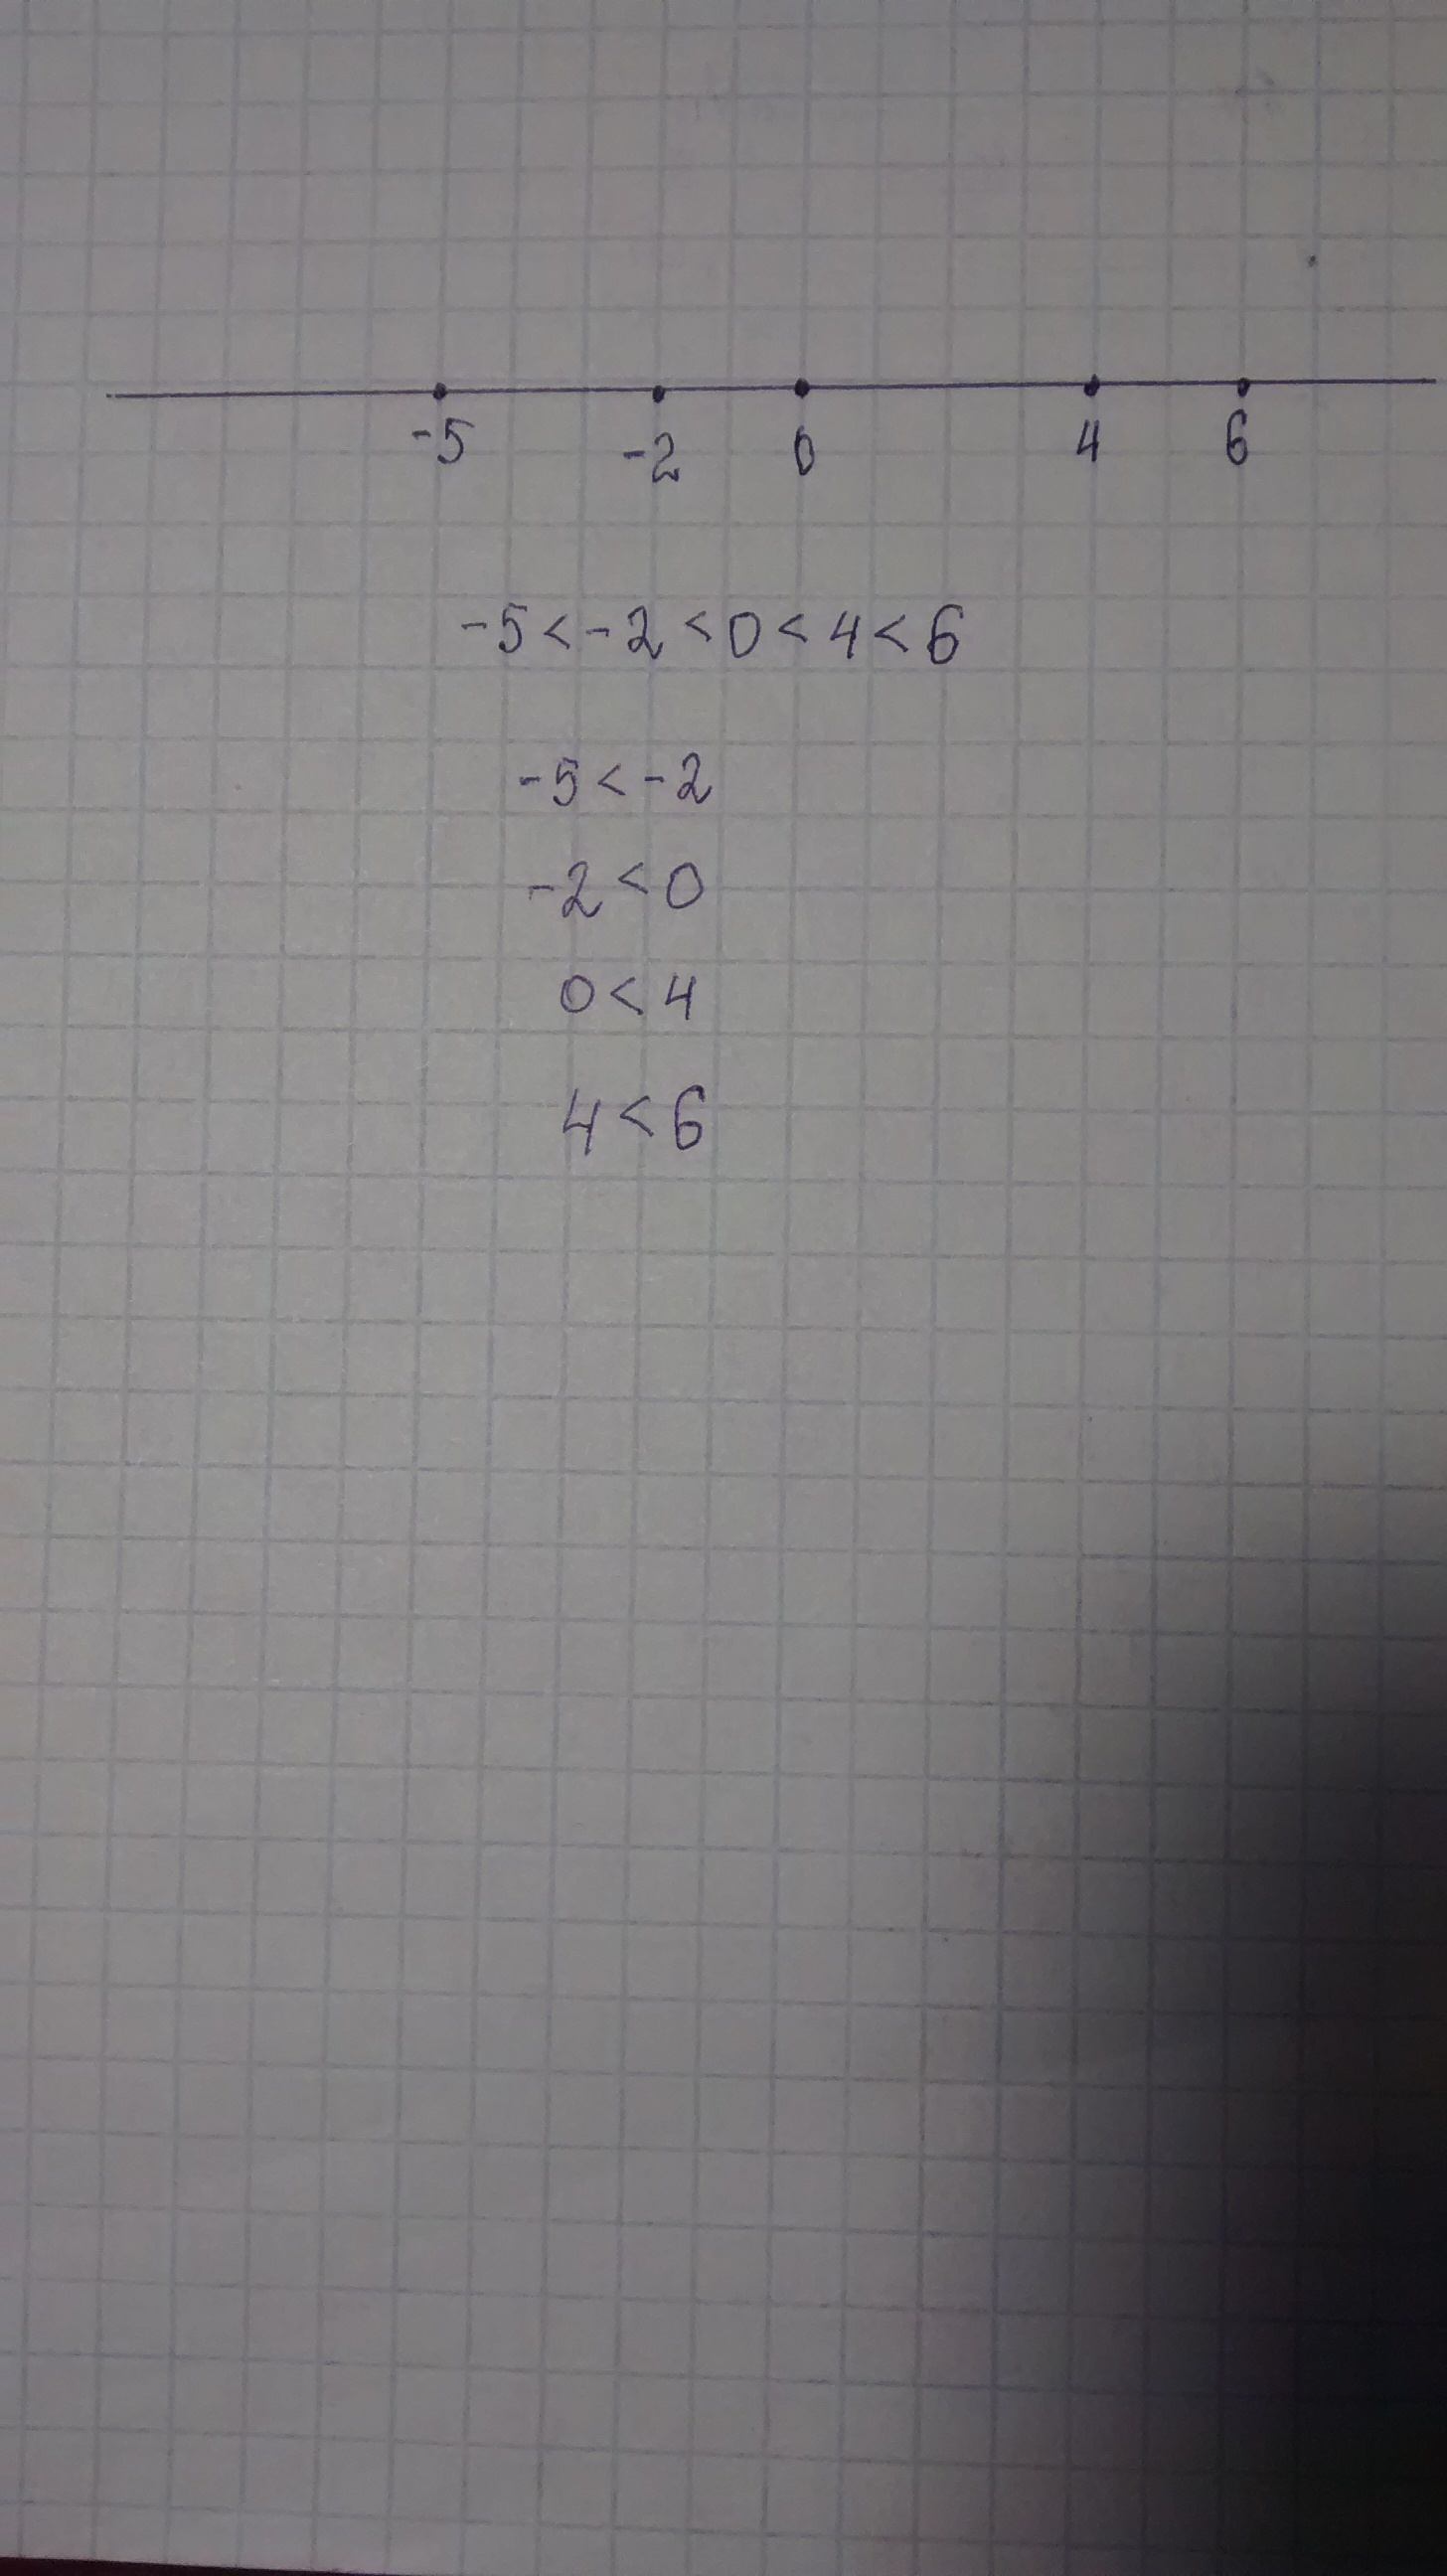 -5 -2 0 4 6
-5 < -2 < 0 < 4 < 6
-5 < -2
-2 < 0
0 < 4
4 < 6